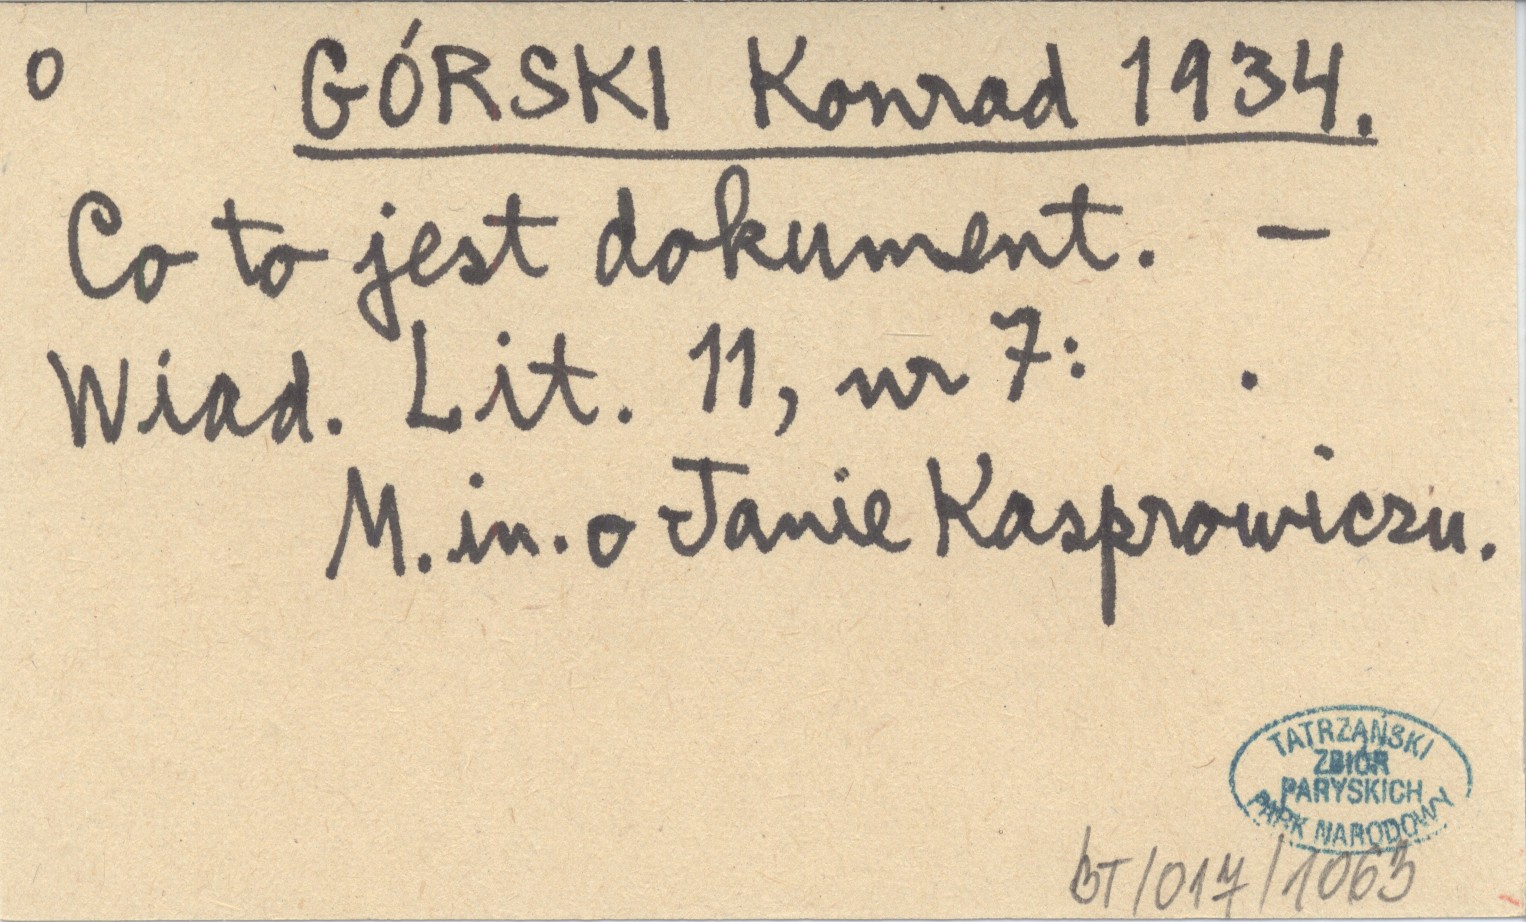 o GÓRSKI Konrad 1934.
Co to jest dokument. –
Wiad. Lit. 11, nr 7: .
M. in. o Janie Kasprowiczu.
TATRZAŃSKI
ZBIÓR
PARYSKICH
PARK NARODOWY
BT/017/1063